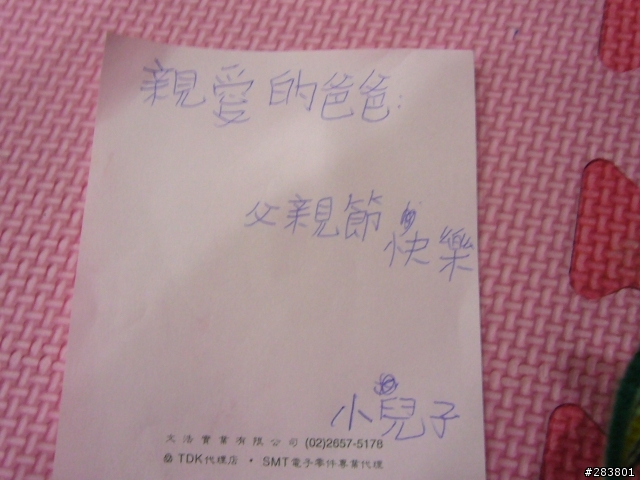 親愛的爸爸:
父親節快樂
小兒子
文浩實業有限公司 (02)2657-5178
TDK代理店 · SMT電子零件專業代理
#283801